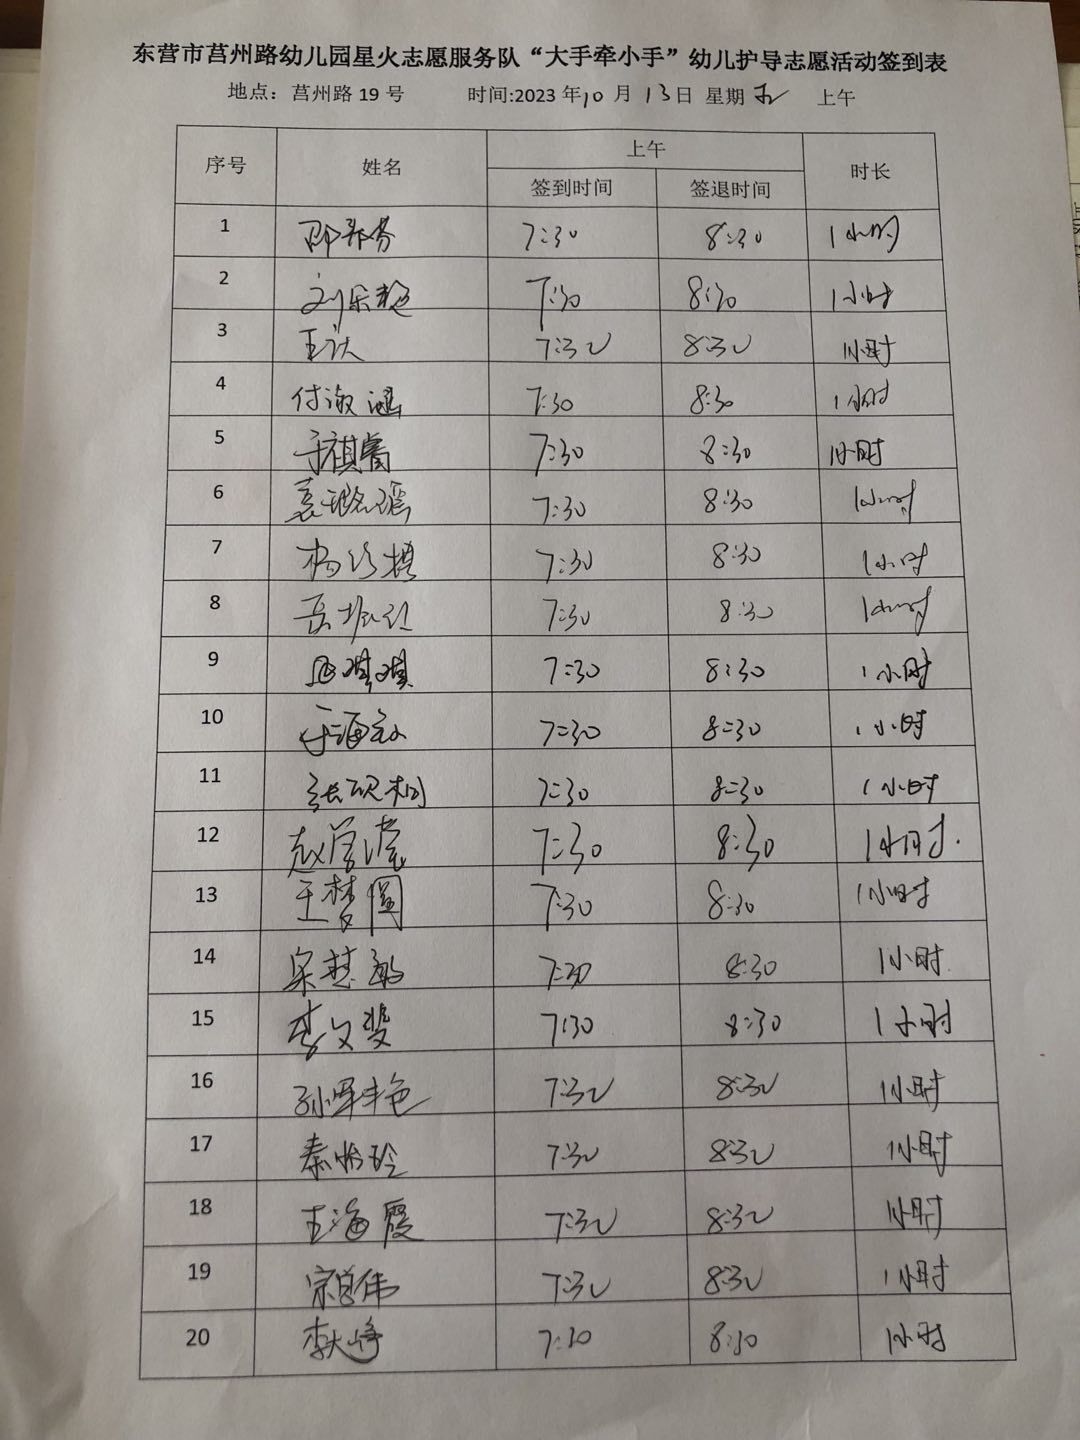 东营市莒州路幼儿园星火志愿服务队“大手牵小手”幼儿护导志愿活动签到表
地点：莒州路 19 号 时间:2023 年10 月 13日 星期 五 上午
序号 姓名 上午 时长
签到时间 签退时间
1 7:30 8:30 1小时
2 7:30 8:30 1小时
3 7:30 8:30 1小时
4 付淑涵 7:30 8:30 1小时
5 于祺睿 7:30 8:30 1小时
6 袁璐瑶 7:30 8:30 1小时
7 7:30 8:30 1小时
8 7:30 8:30 1小时
9 7:30 8:30 1小时
10 7:30 8:30 1小时
11 张砚桐 7:30 8:30 1小时
12 赵学莹 7:30 8:30 1小时.
13 王梦圆 7:30 8:30 1小时
14 梁慧敏 7:30 8:30 1小时
15 李文斐 7:30 8:30 1小时
16 7:30 8:30 1小时
17 秦怡玲 7:30 8:30 1小时
18 王海霞 7:30 8:30 1小时
19 7:30 8:30 1小时
20 李大峥 7:30 8:30 1小时